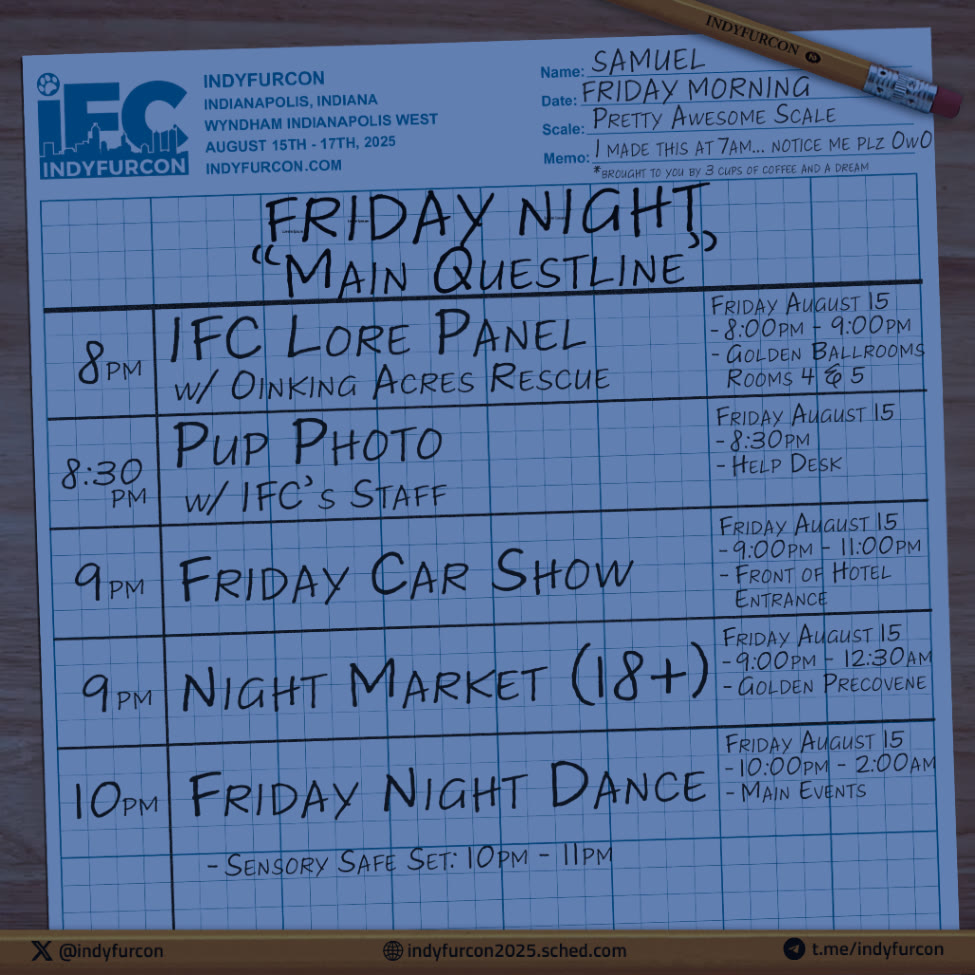 INDYFURCON
iFC
INDYFURCON
INDYFURCON
INDIANAPOLIS, INDIANA
WYNDHAM INDIANAPOLIS WEST
AUGUST 15TH - 17TH, 2025
INDYFURCON.COM
Name: SAMUEL
Date: FRIDAY MORNING
Scale: PRETTY AWESOME SCALE
Memo: I MADE THIS AT 7AM... NOTICE ME PLZ OwO
*BROUGHT TO YOU BY 3 CUPS OF COFFEE AND A DREAM
FRIDAY NIGHT
"MAIN QUESTLINE"
8PM
IFC LORE PANEL
W/ OINKING ACRES RESCUE
FRIDAY AUGUST 15
- 8:00PM - 9:00PM
- GOLDEN BALLROOMS
ROOMS 4 & 5
8:30
PM
PUP PHOTO
W/ IFC'S STAFF
FRIDAY AUGUST 15
- 8:30PM
- HELP DESK
9PM
FRIDAY CAR SHOW
FRIDAY AUGUST 15
- 9:00PM - 11:00PM
- FRONT OF HOTEL
ENTRANCE
9PM
NIGHT MARKET (18+)
FRIDAY AUGUST 15
- 9:00PM - 12:30AM
- GOLDEN PRECOVENE
10PM
FRIDAY NIGHT DANCE
FRIDAY AUGUST 15
- 10:00PM - 2:00AM
- MAIN EVENTS
- SENSORY SAFE SET: 10PM - 11PM
@indyfurcon
indyfurcon2025.sched.com
t.me/indyfurcon